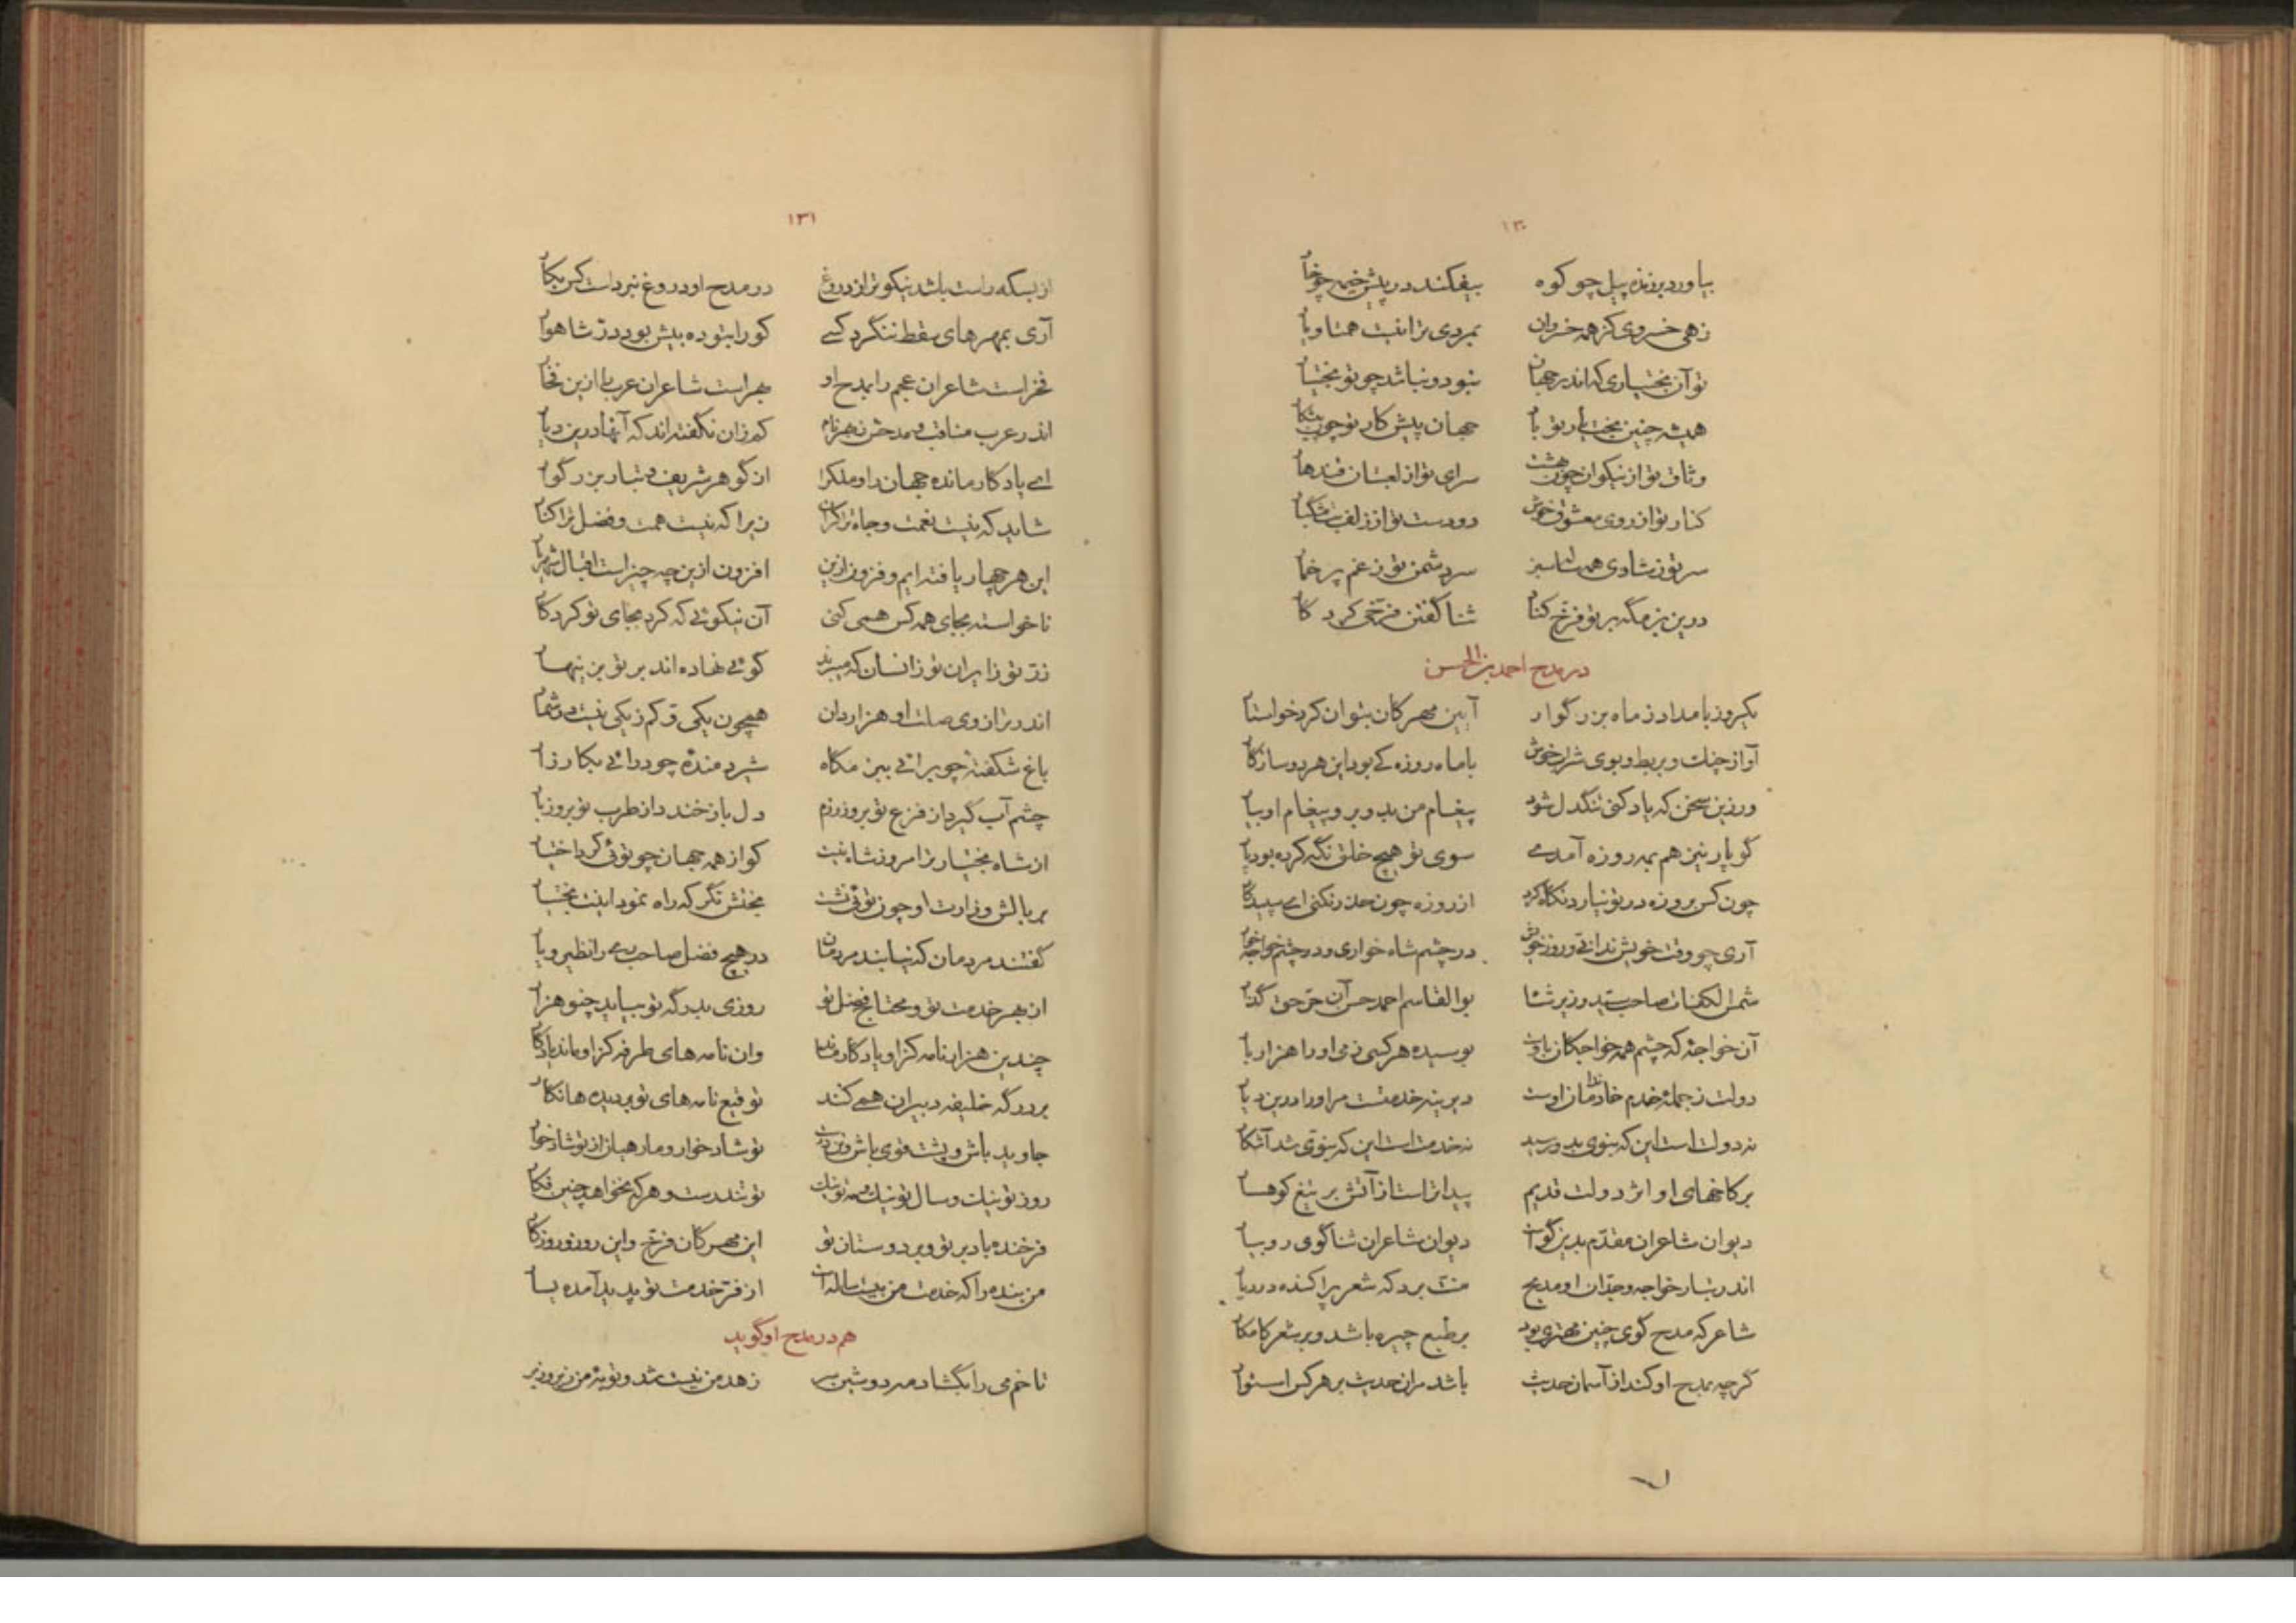 ۱۳۰
بیاورد برنده پیل چو کوه بیفکند در پیش خیمه چو خار
زهی خسروی کز همه خسروان بمردی ترا نیست همتا و یار
تو آن بختیاری که اندر جهان نبود و نباشد چو تو بختیار
همیشه چنین بخت یار تو باد جهان پیش کار تو چون پیشکار
وثاق تو از نیکوان چون بهشت سرای تو از لعبتان قندهار
کنار تو از روی معشوق خوش دو دست تو از زلف بت مشکبار
سر تو ز شادی همیشه سبز سر دشمن تو ز غم پر خمار
درین بزمگه بر تو فرخ کناد ثنا گفتن فرخی کردگار
در مدح احمد بن الحسن
یکروز بامداد ز ماه بزرگوار آیین مهرکان بتوان کرد خواستار
آواز چنک و بربط و بوی شراب خوش با ماه روزه کی بود این هر دو سازکار
ورزین سخن که یاد کنی تنگدل شود پیغام من بدو بر و پیغام او بیار
کو پار نیز هم بمه روزه آمدی سوی تو هیچ خلق نگه کرده بود پار
چون کس بروزه در تو نیارد نگاه کرد از روزه چون حذر نکنی ای سپیدکار
آری چو وقت خویش ندانی و روز خویش در چشم شاه خواری و در چشم خواجه خوار
شمس الکفات صاحب سید وزیر شاه بوالقاسم احمد حسن آن حق حق گذار
آن خواجهٔ که چشم همه خواجکان باوست بوسیده هر کسی زمی او را هزار بار
دولت ز جملهٔ خدم خادمان اوست دیرینه خدمتست مر او را درین دیار
نه دولت است این که بنوی بدو رسید نه خدمت است این که بنوی شد آشکار
بر کاخهای او اثر دولت قدیم پیداتر است از آتش بر تیغ کوهسار
دیوان شاعران مقدم بدین گواست دیوان شاعران ثناگوی رو بیار
اندر تبار خواجه و جدان او مدیح منت برد که شعر پراکنده در دیار
شاعر که مدح گوی چنین مهتری بود بر طبع چیره باشد و بر شعر کامکار
گرچه بمدح او کند از آسمان حدیث باشد مران حدیث بر هر کس استوار
۱۳۱
از بسکه راست باشد نیکوتر از دروغ در مدح او دروغ نبرداست کس بکار
آری بمهرهای سقط ننگرد کسی کو را بتوده پیش بود در شاهوار
فخر است شاعران عجم را بمدح او هجر است شاعران عرب را ازین فخار
اندر عرب مناقب و مدحش بهر نام کم زان نگفته‌اند که آنها درین دیار
ای یادکار مانده جهان را و ملک را از گوهر شریف و تبار بزرگوار
شاید که نیست نعمت و جاه ترا کران زیرا که نیست همت و فضل ترا کنار
این هر چهار یافته‌ایم و فزون ازین افزون ازین چه چیز است اقبال شهریار
ناخواسته بجای همه کس همی کنی آن نیکوئی که کرد بجای تو کردکار
زر تو زایران تو زانسان که میبرند گوئی نهاده‌اند بر تو بزینهار
اندر ترازوی صلت او هزاردان همچون یکی و کم ز یکی نیست در شمار
باغ شکفتهٔ چو برائی ببزمکاه شیر دمندهٔ چو درائی بکارزار
چشم آب گیرد از فزع تو بروز رزم دل باز خندد از طرب تو بروز بار
از شاه بختیارتر امروز شاه نیست کو از همه جهان چو توئی کرد اختیار
بر بالش وزارت او چون توئی نشست بختش نگر که راه نمود اینت بختیار
گفتند مردمان که نیابند مردمان در هیچ فضل صاحب ری را نظیر و یار
از بهر خدمت تو و محتاج فضل تو روزی بدرگه تو بیاید چنو هزار
چندین هزار نامه کز او یادکار ماند وان نامه‌های طرفه کز او ماند یادکار
بر درگه خلیفه دبیران همی کنند توقیع نامه‌های تو بر دیده‌ها نکار
جاوید باش و پشت قوی باش و تندرست تو شادخوار و ما رهیان از تو شادخوار
روز تو نیک و سال تو نیک و مه تو نیک تو تندرست و هر که نخواهد چنین فکار
فرخنده باد بر تو و بر دوستان تو این مهرکان فرخ و این روز و روزکار
من بنده را که خدمت من بیست ساله است از فر خدمت تو پدید آمده یسار
هم در مدح او گوید
تا خم می را بگشاد مه دوشین سر زهد من نیست شد و توبهٔ من زیر و زبر